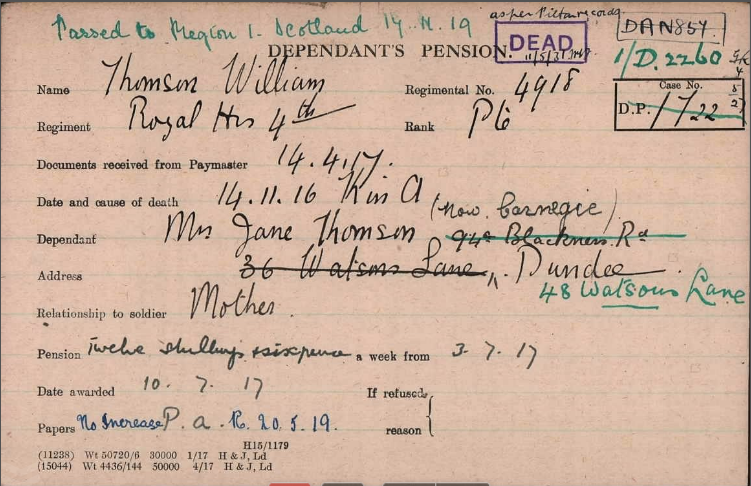 Passed to Region 1. Scotland 14.11.19
as per Pilta records
DEAD
DAN854
DEPENDANT'S PENSION.
1/D.2260
Name Thomson William Regimental No. 4918
Case No.
D.P. 1722
5/2
Regiment Royal Hrs 4th Rank Pte
Documents received from Paymaster 14.4.17.
Date and cause of death 14.11.16 K in A
(now Carnegie)
Dependant Mrs Jane Thomson 94a Blackness Rd
Address 36 Watsons Lane, Dundee
48 Watsons Lane
Relationship to soldier Mother.
Pension Twelve shillings & sixpence a week from 3.7.17
Date awarded 10.7.17 If refused,
Papers No Increase P.a.R. 20.5.19. reason
H15/1179
(11238) Wt 50720/6 30000 1/17 H & J, Ld
(15044) Wt 4436/144 50000 4/17 H & J, Ld